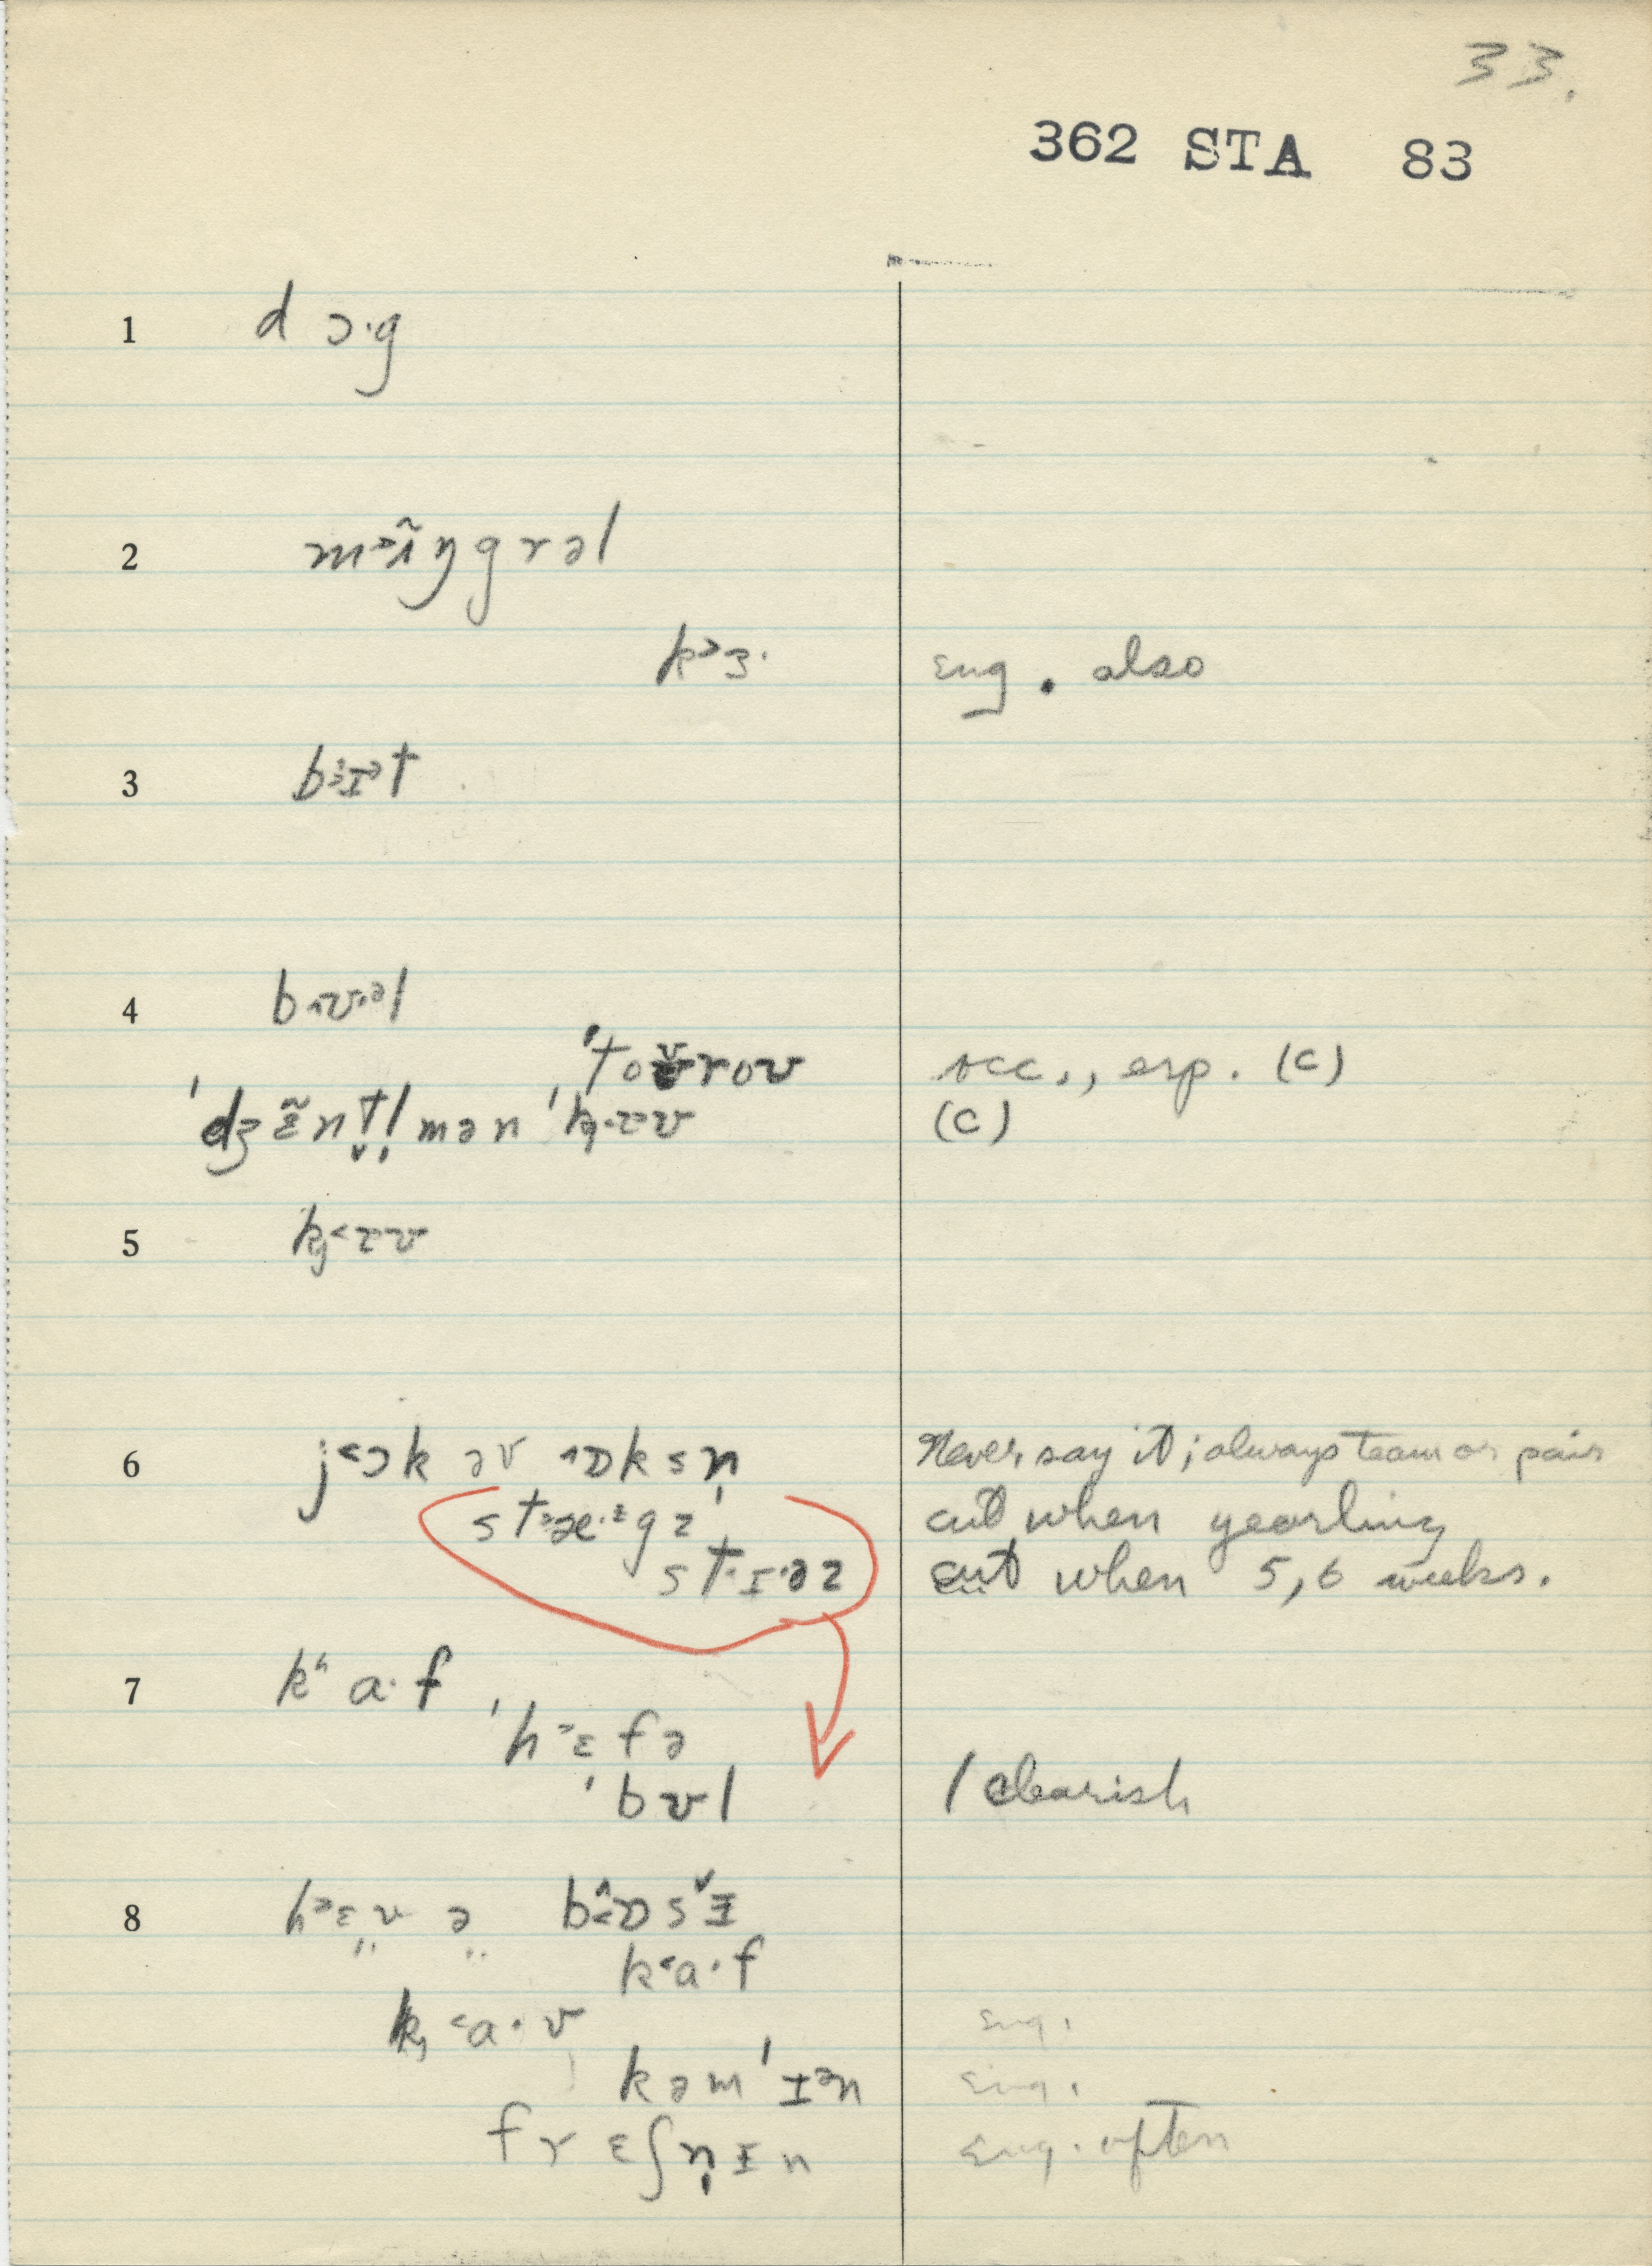 33.
362 STA 83
1 d ɔ·g
2 m ɜ ĩ ŋ g r ə l
k ɜ· eng. also
3 b ɪ ə t
4 b ʊ ə l
ˈt o ʊ r o ʊ occ., esp. (C)
ˈdʒ ɛ̃ n t l̩ m ə n ˈk ʊ (C)
5 k ʊ
6 j ɔ k ə v ɒ k s n̩ Never say it; always team or pair
s t æ·ᵋ g z cut when yearling
s t ɪ·ə z cut when 5, 6 weeks.
7 kʰ a· f
ˈh ɛ f ə
ˈb ʊ l l clearish
8 h ɛ v ə b ɒ s ɪ
k a· f
k a· v eng.
k ə m ˈɪ ə n eng.
f r ɛ ʃ n̩ ɪ n eng. often